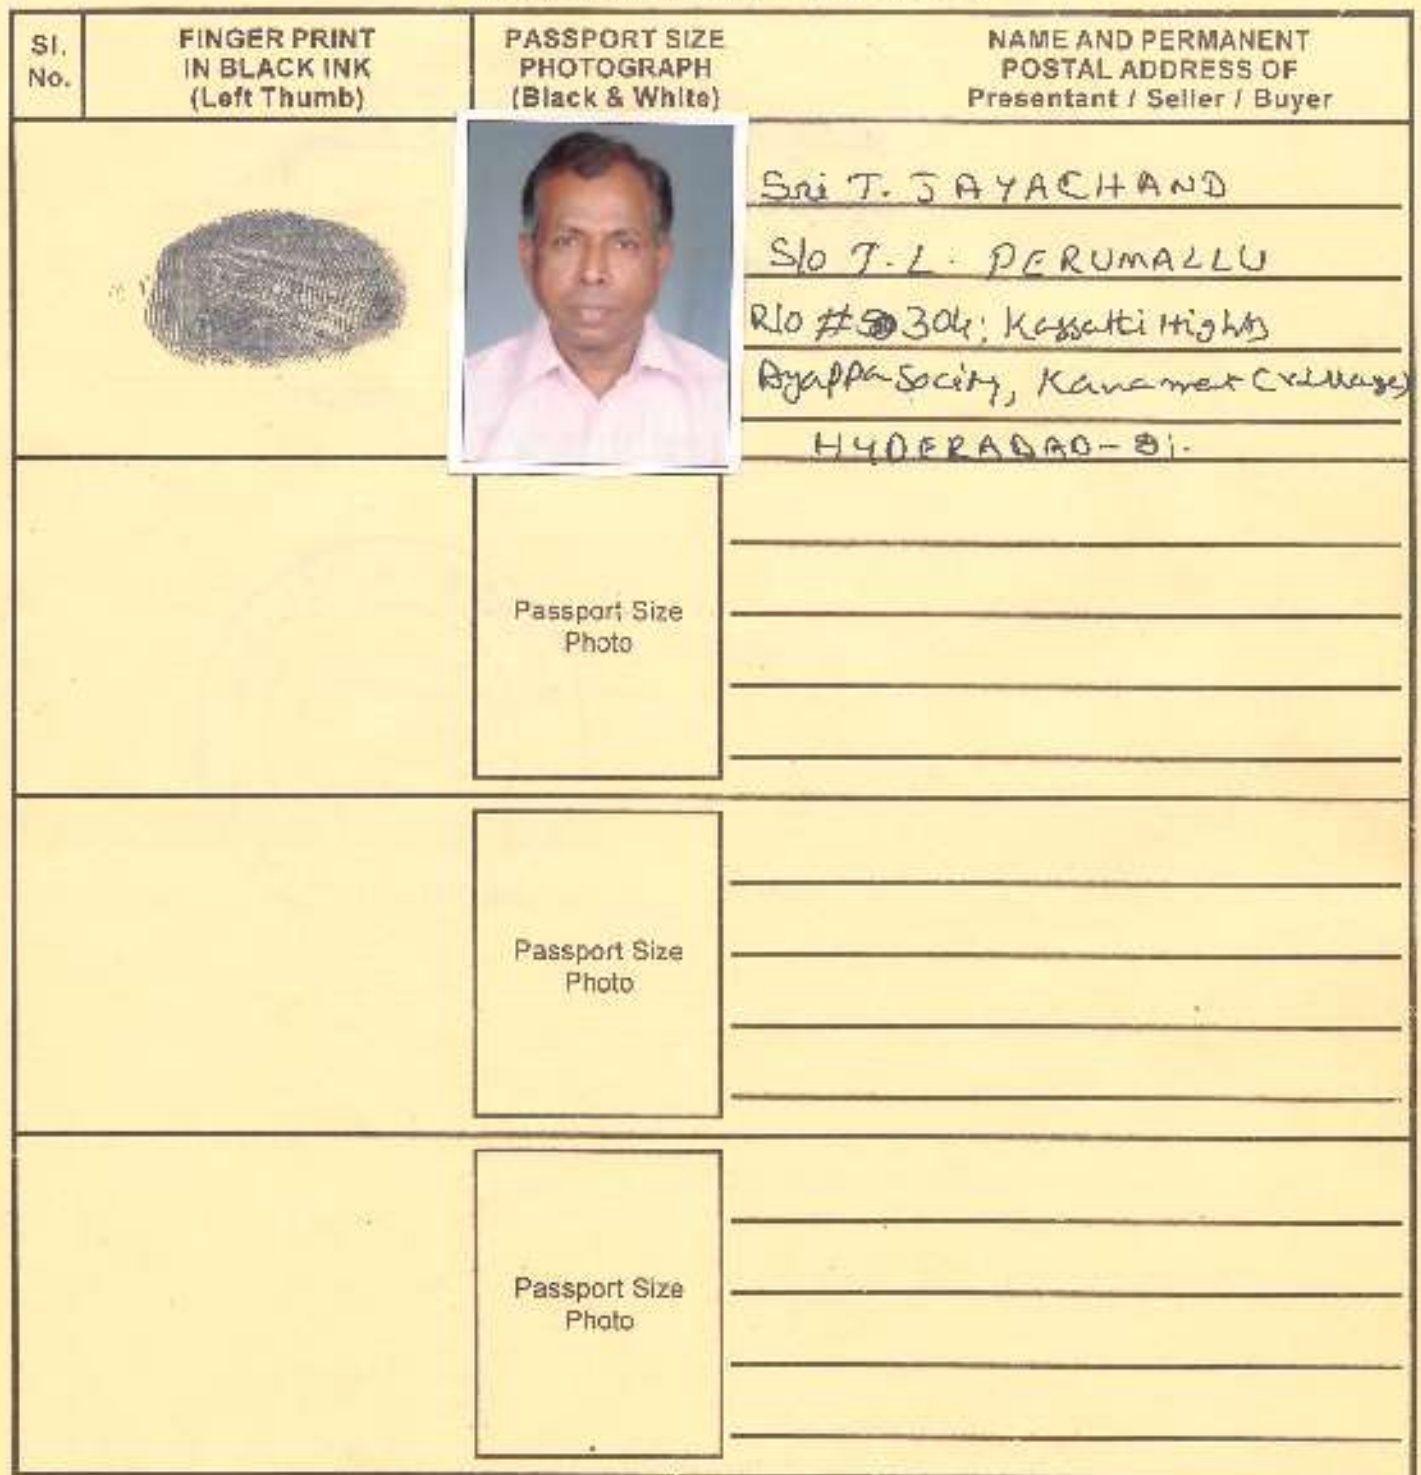 Sl.
No.
FINGER PRINT
IN BLACK INK
(Left Thumb)
PASSPORT SIZE
PHOTOGRAPH
(Black & White)
NAME AND PERMANENT
POSTAL ADDRESS OF
Presentant / Seller / Buyer
Sri T. JAYACHAND
S/o T.L. PERUMALLU
R/o # 304; Hights
Ayappa Socity, (village)
HYDERABAD-81.
Passport Size
Photo
Passport Size
Photo
Passport Size
Photo